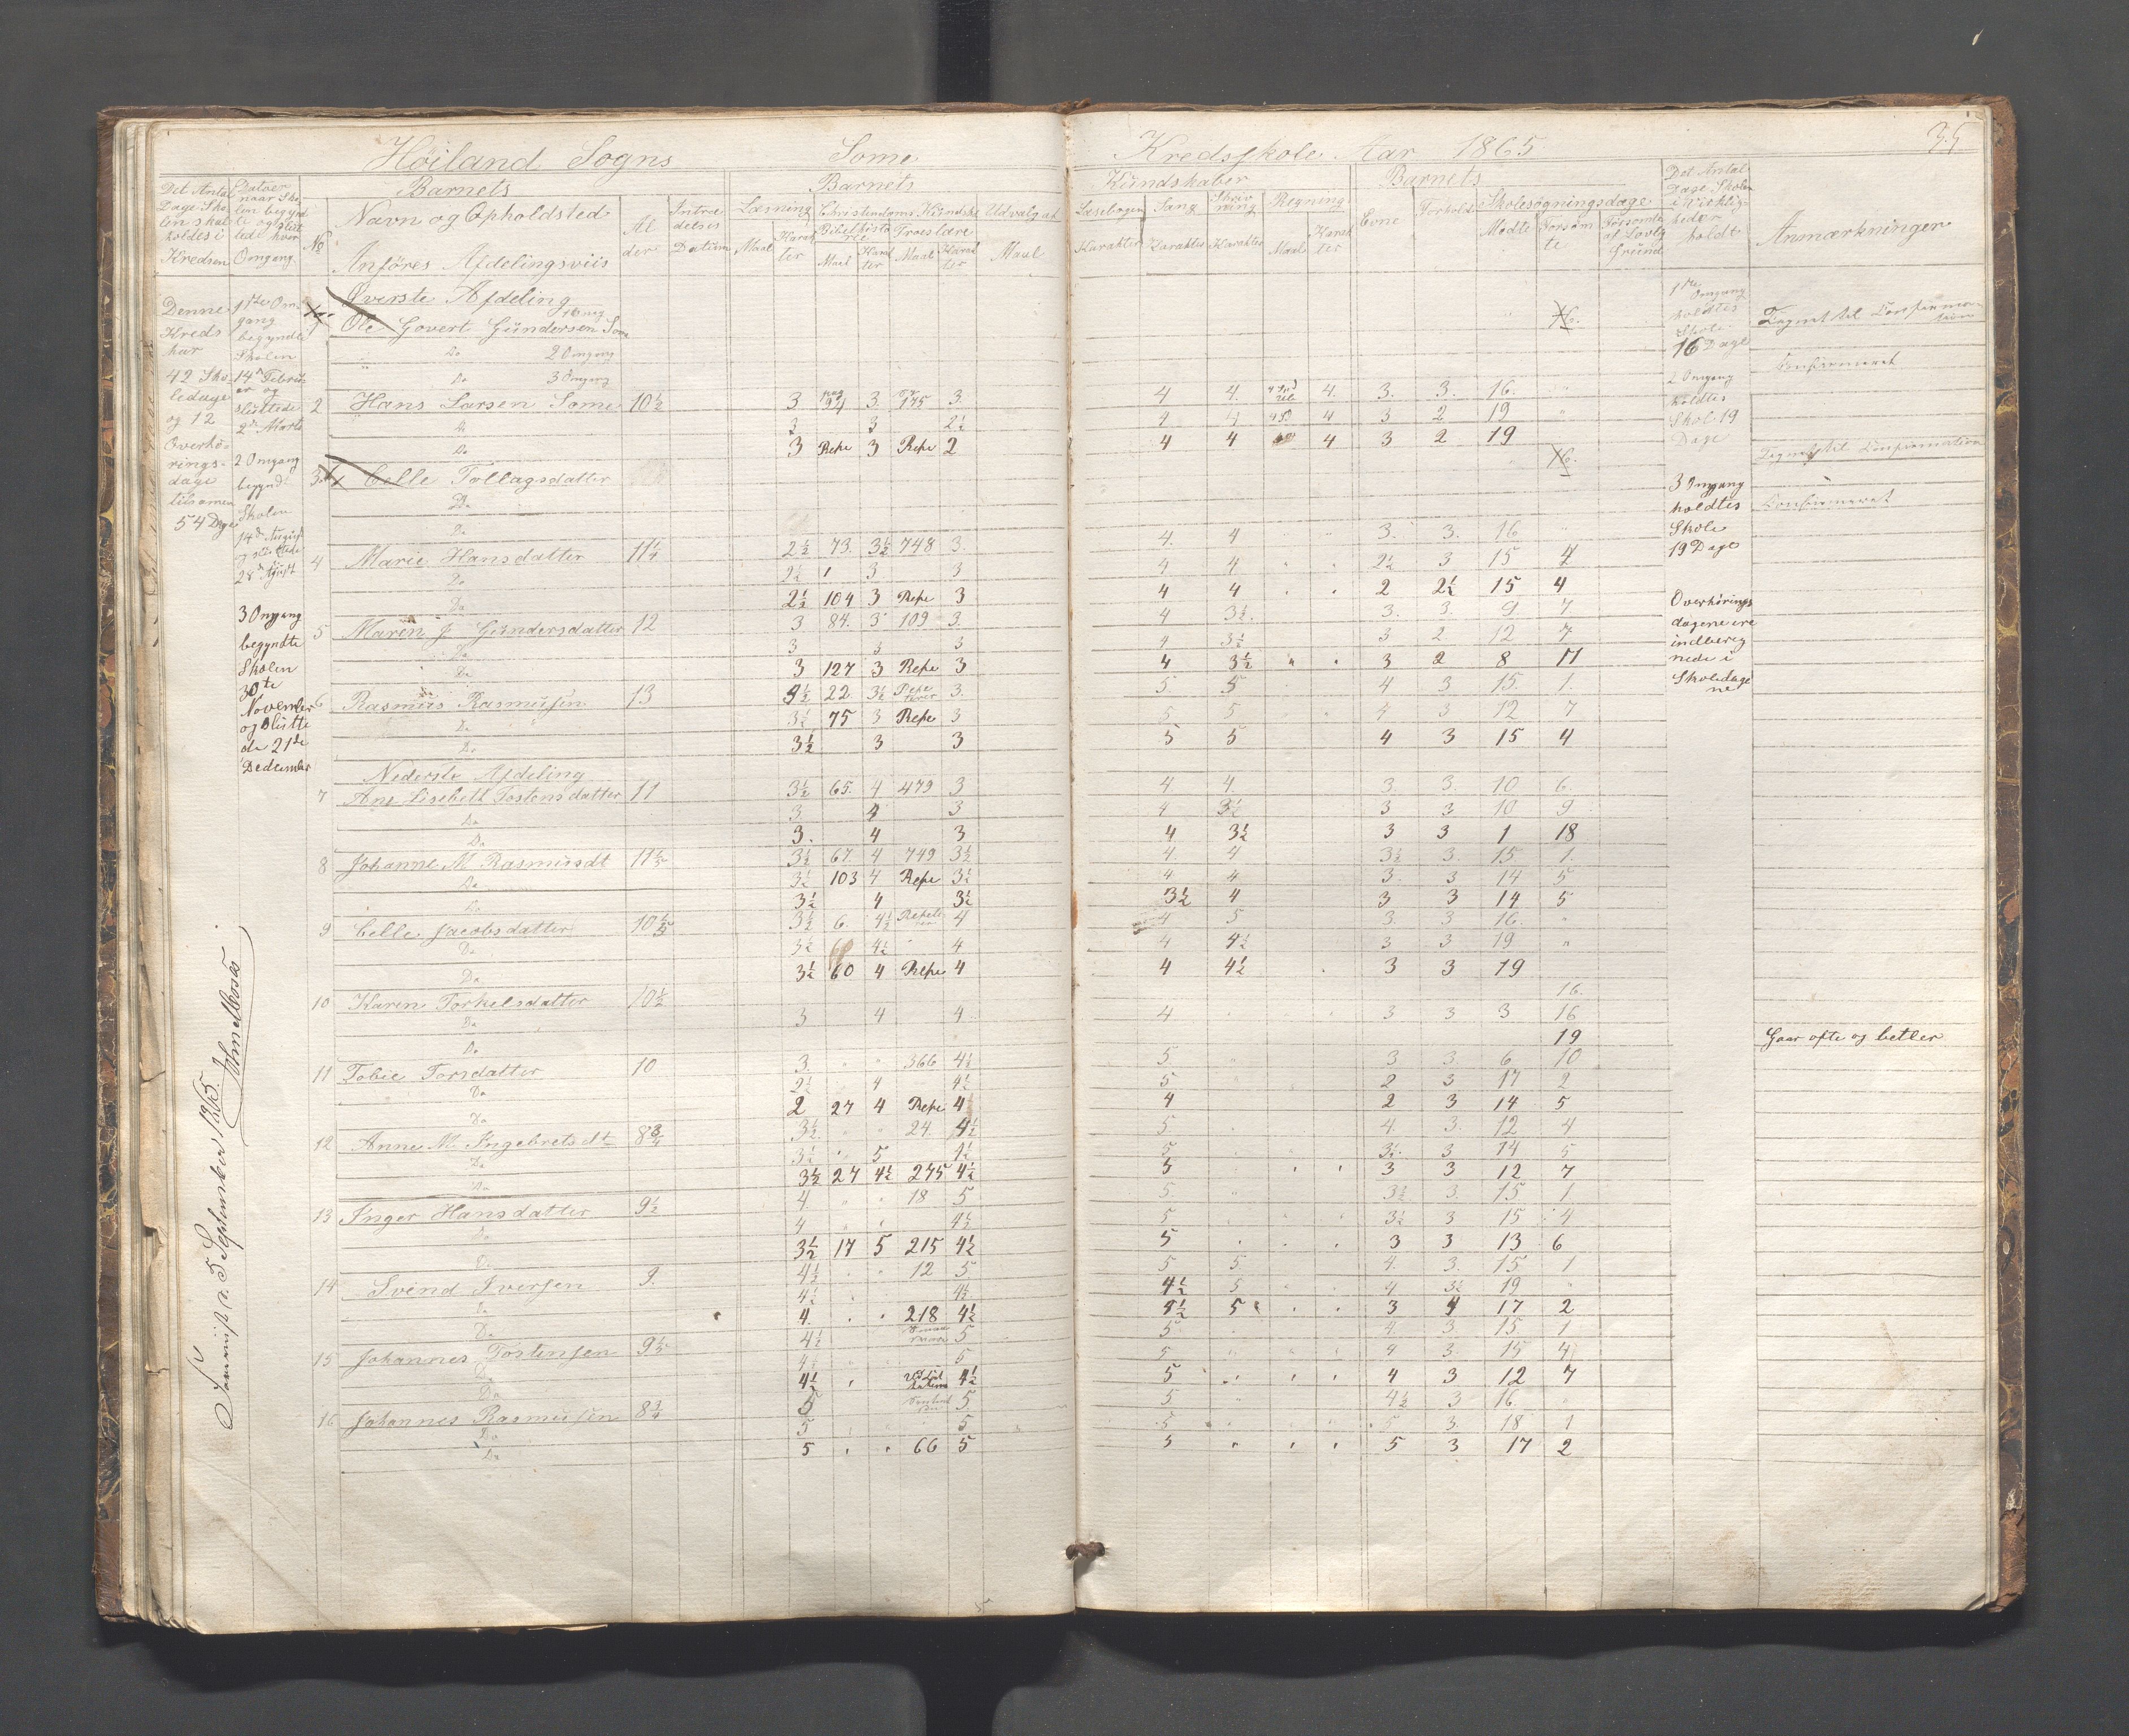 Höiland Sogns Some Kredsskole Aar 1865 35
Det Antal Dage Skolen skal holdes i Kredsen
Datoen naar Skolen begyndte og sluttede hver Omgang
No
Barnets
Navn og Opholdsted
Anföres Afdelingsviis
Alder
Intrædelses Datum
Barnets Kundskaber
Læsning Maal Harakter
Christendoms Kundskab
Bibelhistorie Maal Karakter
Troeslære Maal Karakter
Udvalg af Maal
Læsebogen Karakter
Sang Karakter
Skrivning Karakter
Regning Maal Karakter
Barnets
Evne
Forhold
Skolesögningsdage
Mødte
Forsømte
Forsømte af Lovlig Grund
Det Antal Dage Skolen i Virkligheden holdt
Anmærkninger
Denne Kreds har 42 Skoledage og 12 Overhöringsdage tilsamen 54 Dage
1ste Omgang begyndte Skolen 14de Februar og sluttede 2den Marts
2 Omgang begynd. Skolen 14de August og sluttede 28de August
3 Omgang begyndte Skolen 30te November og sluttede 21de Dedcember
1ste Omgang holdtes Skole 16 Dage
2 Omgang holdtes Skol. 19 Dage
3 Omgang holdtes Skole 19 Dage
Overhörings dagene ere indberegnede i Skoledagene
Øverste Afdeling
1 Ole Govert Gündersen Some 1 Omg 16.
Do 2 Omgang
Do 3 Omgang Confirmeret
2 Hans Larsen Some 10½ 3 94 3. 175 3. 4 4. 4. 3. 3. 16. "
Do 3 3 2½ 4 4 4 3 2 19 "
Do 3 Repe 3 Repe 2 4 4 4 3 2 19
3 Celle Tollagsdatter 16. Tegnet til Confirmation
Do
Do Confirmeret
4 Marie Hansdatter 11¼ 2½ 73. 3½ 748 3. 4. 4 3. 3. 16 "
Do 2½ 3 3 4 4 2½ 3 15 4
Do 2½ 104 3 Repe 3 4 4 2 2½ 15 4
5 Maren J Gündersdatter 12 3 84. 3 109 3. 4 3½. 3. 3. 9 7
Do 3 3 3 4 3½ 3 2 12 7
Do 3 127 3 Repe 3 4 3½ 3 2 8 11
6 Rasmus Rasmusen 13 22 3½ 3. 5 5 4 3 15. 1.
Do 3½ 75 3 Repe 3 5 5 4 3 12 7
Do 3½ 3 3 5 5 4 3 15 4
Nederste Afdeling
7 Ane Lisebeth Tostensdatter 11 3½ 65. 4 479 3 4 4. 3. 3. 10 6.
Do 3 4 3 4 3½ 3 3 10 9
Do 3. 4 3 4 3½ 3 3 1 18
8 Johanne M Rasmusdt 3½ 67. 4 749 3½ 4. 4 3½ 3. 15 1.
Do 3½ 103 4 Repe 3½ 4 4 3. 3 14 5
Do 3½ 4 3½ 3½ 4 3 3 14 5
9 Celle Jacobsdatter 3½ 6. 4½ 4 4 5 3. 3 16. "
Do 3½ 4½ " 4 4 4½ 3 3 19 "
Do 3½ 60 4 Repe 4 4 4½ 3 3 19
10 Karen Torkelsdatter 10½ 16.
Do 3 4 4. 4 3 3 3 16
Do 19 Gaar ofte og betler
11 Tobie Torsdatter 10 3. " " 366 4½ 5. " 3 3. 6 10
Do 2½ 4 4½ 5 2 3 17 2
Do 2 27 4 Repe 4 4 2 3 14 5
12 Anne M. Ingebretsdt 8¾ 3½ " " 24. 4½ 5 4. 3. 12 4
Do 3½ " 5 4½ 5 3½ 3 14 5
Do 3½ 27 4½ 275 4½ 5 3 3 12 7
13 Inger Hansdatter 9½ 4 " " 18 5 5. " 3½ 3. 15 1
Do 4 4½ 5 3½ 3 15 4
Do 3½ 17 5 215 4½ 5 3 3 13 6
14 Svend Iversen 9. 4½ " " 12 5. 5 5 4. 3. 15 1
Do 4½ 4½ 4½ 5 4 3½ 19 "
Do 4. 218 4½ 5 3 4 17 2
15 Johannes Tostensen 4½ 5 5 4. 3. 15 1
Do 4½ 5 5 4 3 15 4
Do 4½ 4½ 5 4 3 12 7
16 Johannes Rasmusen 8¾ 5 5. 5 4½ 3 16. "
Do 5 5 5 5 3. 18 1
Do 5 66 5 5 5 3 17 2
d. 5 September 1865.